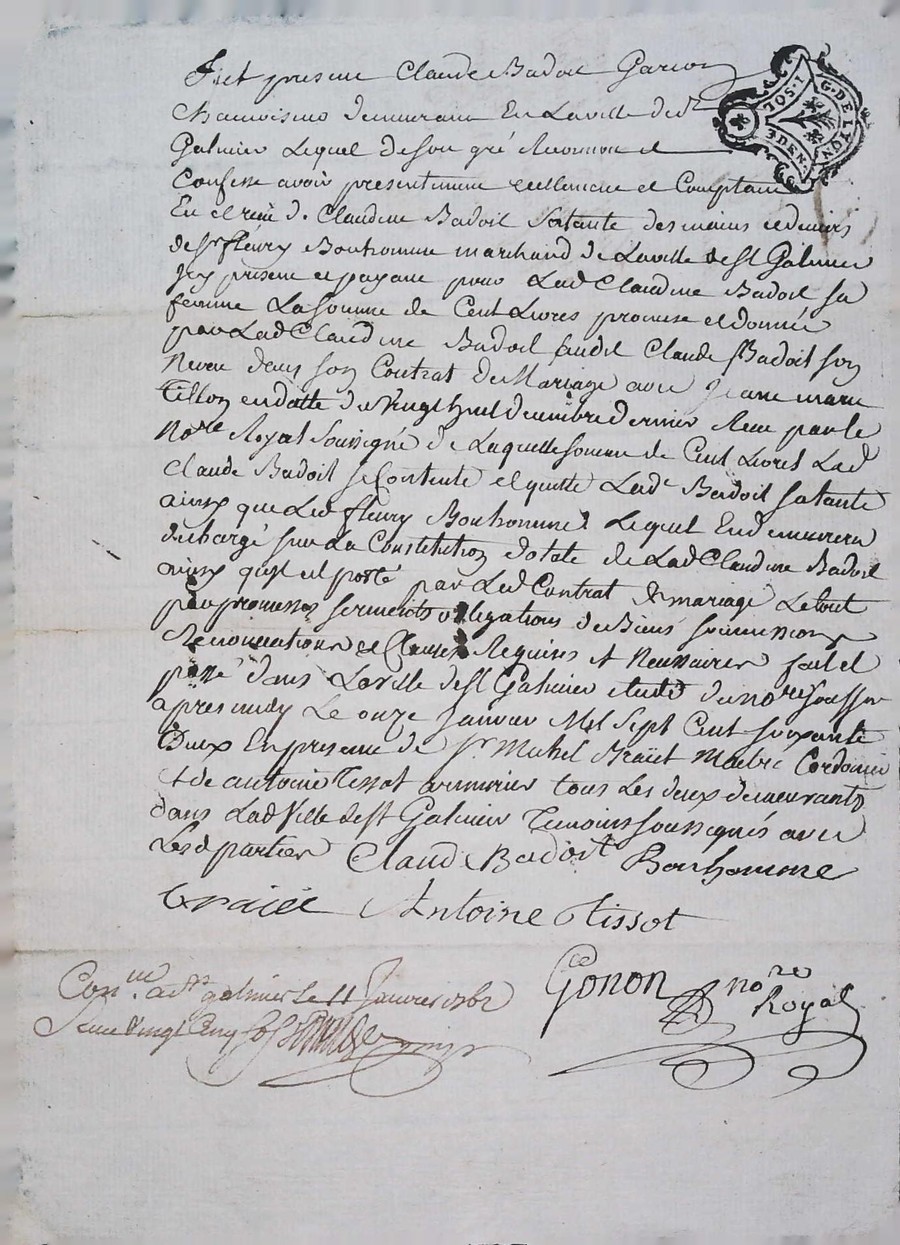 Fut present Claude Badoil Garcon
Chamoiseur demeurant En Laville de St
Galmier Lequel de son gré Reconnoit et
Confesse avoir presentement reellement et Comptant
En et receu de Claudine Badoil Sa tante des mains et deniers
de Sr fleury Bonhomme marchand de Laville de St Galmier
Icy present et payant pour Lad Claudine Badoil sa
femme La somme de Cent Livres promise et donnée
par Lad Claudine Badoil aud Claude Badoit son
Neveu dans son Contrat de Mariage avec Jeanne marie
Tillon en datte du Vingt huit decembre dernier Receu par le
Nore Royal Soussigné de Laquelle somme de Cent Livres Led
Claude Badoil se Contente et quitte Lade Badoil sa tante
ainsy que Led fleury Bonhomme Lequel En demeurera
dechargé sur La Constitution dotale de Lad Claudine Badoil
ainsy quil est porté par Led Contrat de mariage Le tout
par promesses serments obligations de Biens soumissions
Renonciations et Clauses Requises et Necessaires fait et
passé dans Laville de St Galmier etude du nore soussr
apres midy Le onze Janvier Mil Sept Cent soixante
Deux En presence de Sr Michel Traict Maitre Cordonier
et de antoine Tissot armurier tous Les deux demeurants
dans Lad Ville de St Galmier Temoins soussignés avec
Lesd parties Claude Badoit Bonhomme
Traict Antoine Tissot
Gonon nore
Royal
Conlle a St galmier le 11 Janvier 1762
Receu Vingt Cinq sols
G. DE LYON
1. SOL
3 DEN.